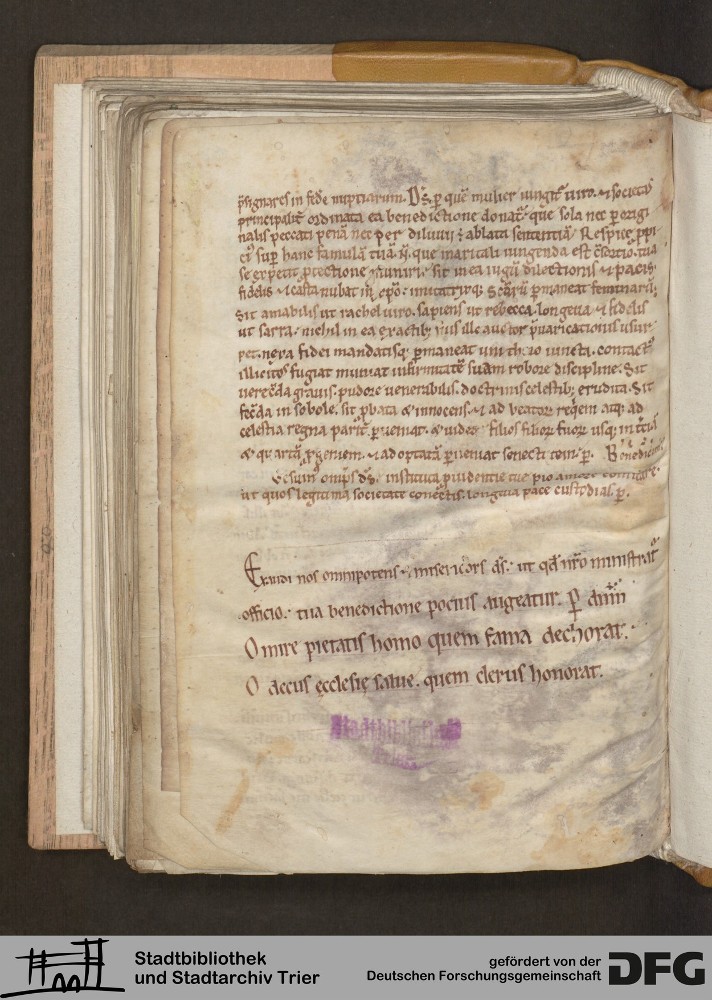 p̄signares in fede nuptiarum. D̄s. ꝑ quē mulier iungit᷑ uiro. ⁊ societas
principalit᷑ ordinata ea benedictione donat᷑. que sola nec ꝑ origi
nalis peccati penā nec per diluuii ē ablata sententiā. Respice ꝓpi
ci' suꝑ hanc famulā tuā. q̄ que maritali iungenda est c̄sortio. tua
se expetit ꝓtectione muniri. sit in ea iugū dilectionis ⁊ pacis.
fidelis ⁊ casta nubat in xp̄o. imitatrixq; scārū ꝑmaneat feminarū.
Sit amabilis ut rachel uiro. sapiens ut rebecca. longeua ⁊ fidelis
ut sarra. nichil in ea ex actib; suis ille auctor p̄uaricationis usur
pet. nexa fidei mandatisq; ꝑmaneat uni thoro iuncta. contact'
illicitos fugiat muniat infirmitatē suam robore discipline. Sit
uerecūda grauis. pudore uenerabilis. doctrinis celestib; erudita. Sit
fecūda in sobole. sit ꝓbata & innocens. ⁊ ad beatorū requiem atq; ad
celestia regna ꝑueniat. & uideat filios filiorū suorū usq; in tertiā
& quartā ꝓgeniem. ⁊ ad optatā ꝑueniat senectutem. ꝑ. Benedictio
Quesum' omp̄s d̄s. instituta ꝓuidentie tue pio amore comitare.
ut quos legitima societate conectis. longeua pace custodias. ꝑ.
Exaudi nos omnipotens ⁊ misericors d̄s. ut qd̄ nr̄o ministrat᷑
officio. tua benedictione pocius augeatur. ꝑ dn̄m
O mire pietatis homo quem fama dechorat.
O decus ęcclesię salue. quem clerus honorat.
Stadtbibliothek
Trier
Stadtbibliothek
und Stadtarchiv Trier
gefördert von der
Deutschen Forschungsgemeinschaft DFG